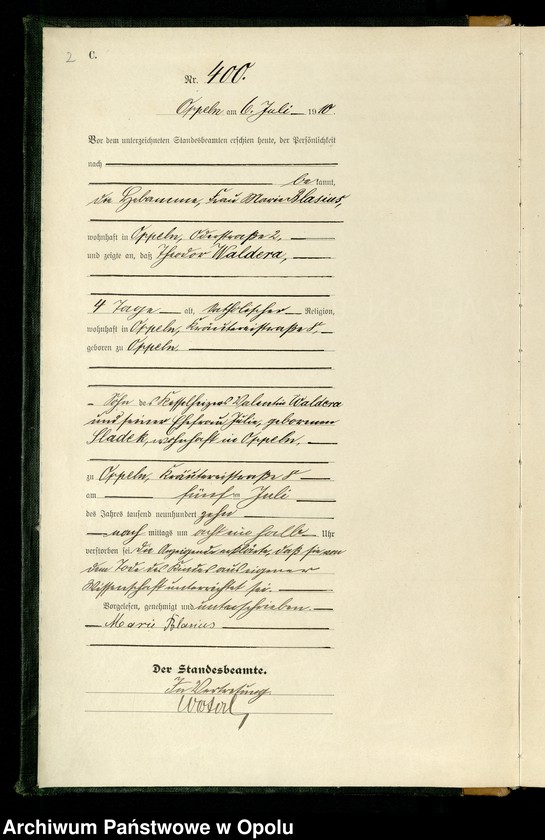 2
C.
Nr. 400.
Oppeln am 6. Juli 1910
Vor dem unterzeichneten Standesbeamten erschien heute, der Persönlichkeit
nach
bekannt,
die Hebamme, Frau Marie Blasius,
wohnhaft in Oppeln, Oderstraße 2,
und zeigte an, daß Theodor Waldera,
4 Tage alt, katholischer Religion,
wohnhaft in Oppeln, Kräutereistraße 8,
geboren zu Oppeln
Sohn des Kesselheizers Valentin Waldera
und seiner Ehefrau Julie, geborenen
Sladek, wohnhaft in Oppeln,
zu Oppeln, Kräutereistraße 8
am fünften Juli
des Jahres tausend neunhundert zehn
nach mittags um acht ein halb Uhr
verstorben sei. Die Anzeigende erklärte, daß sie von
dem Tode des Kindes aus eigener
Wissenschaft unterrichtet sei.
Vorgelesen, genehmigt und unterschrieben.
Marie Blasius
Der Standesbeamte.
In Vertretung
Archiwum Państwowe w Opolu